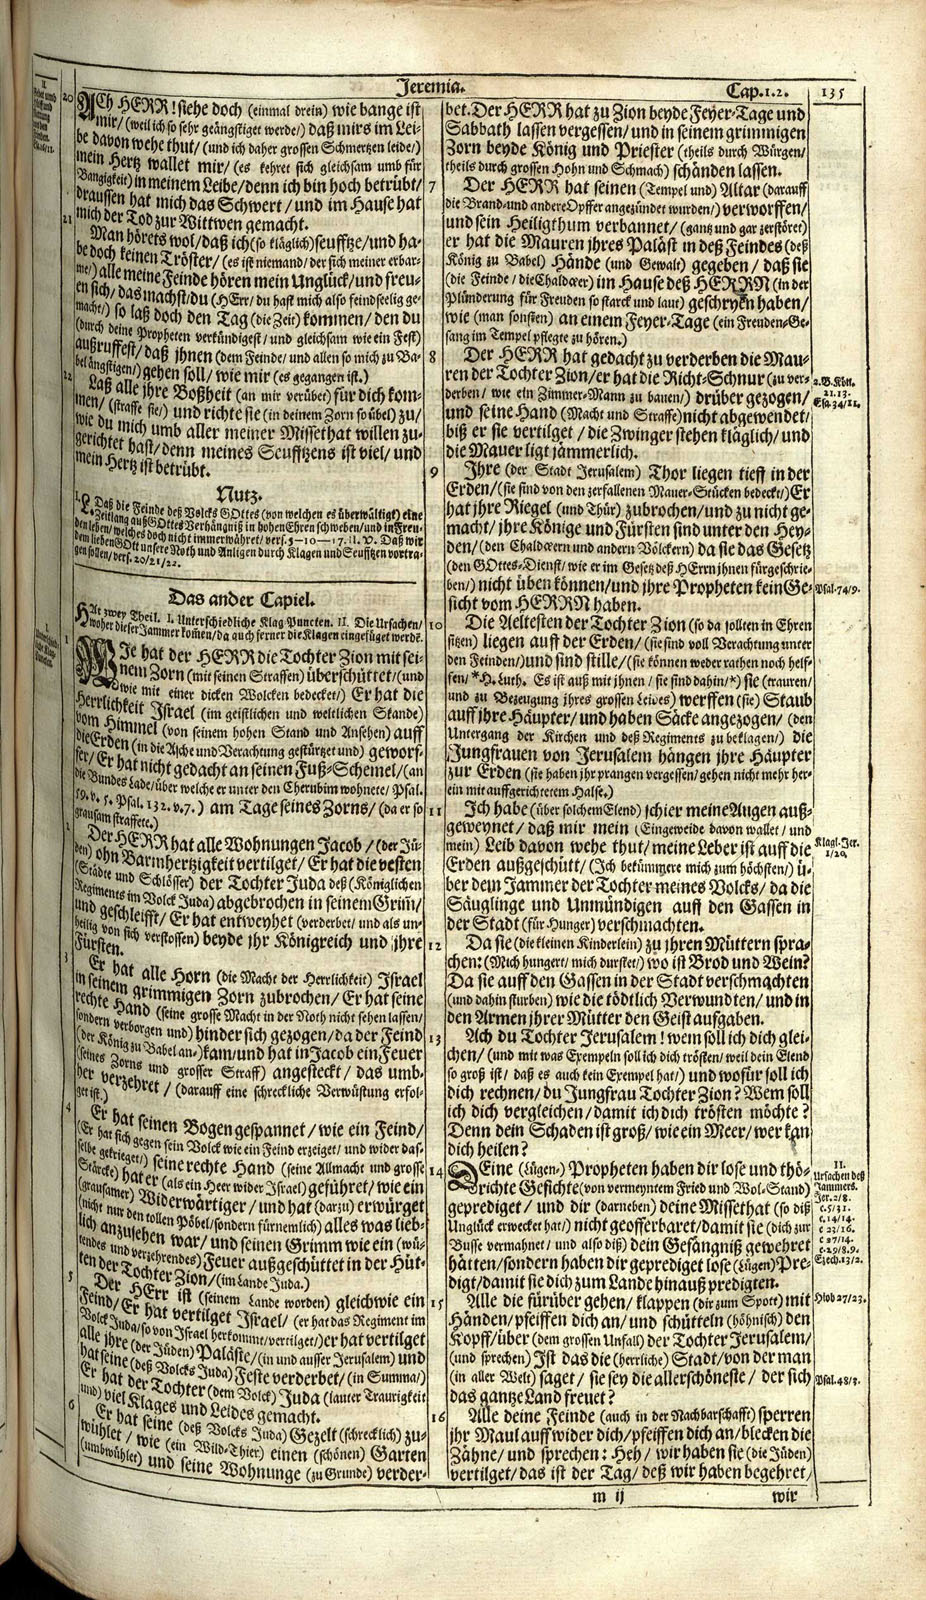 Jeremia.
Cap. 1. 2.
135
20
ACh HERR! siehe doch (einmal drein) wie bange ist
mir/ (weil ich so sehr geängstiget werde/) daß mirs im Lei-
be davon wehe thut/ (und ich daher grossen Schmertzen leide/)
mein Hertz wallet mir/ (es kehret sich gleichsam umb für
Bangigkeit) in meinem Leibe/ denn ich bin hoch betrübt/
draussen hat mich das Schwert/ und im Hause hat
mich der Tod zur Wittwen gemacht.
21
Man hörets wol/ daß ich (so kläglich) seufftze/ und ha-
be doch keinen Tröster/ (es ist niemand/ der sich meiner erbar-
me/) alle meine Feinde hören mein Unglück/ und freu-
en sich/ das machst/ du (HErr/ du hast mich also feindseelig ge-
macht/) so laß doch den Tag (die Zeit) kommen/ den du
(durch deine Propheten verkündigest/ und gleichsam wie ein Fest)
außruffest/ daß jhnen (dem Feinde/ und allen so mich zu Ba-
bel ängstigen/) gehen soll/ wie mir (es gegangen ist.)
22
Laß alle jhre Boßheit (an mir verübt) für dich kom-
men/ (straffe sie/) und richte sie (in deinem Zorn so übel) zu/
wie du mich umb aller meiner Missethat willen zu-
gerichtet hast/ denn meines Seufftzens ist viel/ und
mein Hertz ist betrübt.
Nutz.
I. Daß die Feinde deß Volcks GOttes (von welchen es überwältigt) eine
Zeitlang auß GOttes Verhängniß in hohen Ehren schweben/ und in Freu-
den leben/ welches doch nicht immerwähret/ vers. 5–10–17. II. V. Daß wir
dem lieben GOtt unsere Noth und Anligen durch Klagen und Seufftzen vortra-
gen sollen/ vers. 20/21/22.
Das ander Capiel.
HAt zwey Theil. I. Unterschiedliche Klag-Puncten. II. Die Ursachen/
woher dieser Jammer komen/ da auch ferner die Klagen eingefüget werde.
1
WJe hat der HERR die Tochter Zion mit sei-
nem Zorn (mit seinen Straffen) überschüttet/ (und
wie mit einer dicken Wolcken bedecket/) Er hat die
Herrlichkeit Israel (im geistlichen und weltlichen Stande)
vom Himmel (von seinem hohen Stand und Ansehen) auff
die Erden (in die Asche und Verachtung gestürtzet und) geworf-
fer/ Er hat nicht gedacht an seinen Fuß-Schemel/ (an
die Bundes Lade/ über welche er unter den Cherubim wohnete/ Psal.
99. v. 5. Psal. 132. v. 7.) am Tage seines Zorns/ (da er so
grausam straffete.)
Der HERR hat alle Wohnungen Jacob/ (der Jü-
den) ohn Barmhertzigkeit vertilget/ Er hat die vesten
(Städte und Schlösser) der Tochter Juda deß (Königlichen
Regiments im Volck Juda) abgebrochen in seinem Grim/
und geschleifft/ Er hat entweyhet (verderbet/ und als un-
heilig von sich verstossen) beyde jhr Königreich und jhre
Fürsten.
3
Er hat alle Horn (die Macht der Herrlichkeit) Israel
in seinem grimmigen Zorn zubrochen/ Er hat seine
rechte Hand (seine grosse Macht in der Noth nicht sehen lassen/
sondern verborgen und) hinder sich gezogen/ da der Feind
(der König zu Babel an-) kam/ und hat in Jacob ein Feuer
(seines Zorns und grosser Straff) angesteckt/ das umb-
her verzehret/ (darauff eine schreckliche Verwüstung erfol-
get ist.)
4
Er hat seinen Bogen gespannet/ wie ein Feind/
(Er hat sich gegen sein Volck wie ein Feind erzeiget/ und wider das-
selbe gekrieget/) seine rechte Hand (seine Allmacht und grosse
Stärcke) hat er (als ein Heer wider Israel) geführet/ wie ein
(grausamer) Widerwärtiger/ und hat (darzu) erwürget
(nicht nur den tollen Pöbel/ sondern fürnemlich) alles was lieb-
lich anzusehen war/ und seinen Grimm wie ein (wü-
tendes und verzehrendes) Feuer außgeschüttet in der Hüt-
ten der Tochter Zion/ (im Lande Juda.)
5
Der HErr ist (seinem Lande worden) gleich wie ein
Feind/ Er hat vertilget Israel/ (er hat das Regiment im
Volck Juda/ so von Israel herkommt/ vertilget/) er hat vertilget
alle jhre (der Jüden) Paläste/ (in und ausser Jerusalem) und
hat seine (deß Volcks Juda) Feste verderbet/ (in Summa/)
Er hat der Tochter (dem Volck) Juda (lauter Traurigkeit
und) viel Klages und Leides gemacht.
6
Er hat seine (deß Volcks Juda) Gezelt (schrecklich) zu-
wühlet/ wie (ein Wild-Thier) einen (schönen) Garten
(umbwühlet) und seine Wohnunge (zu Grunde) verder-
bet. Der HERR hat zu Zion beyde Feyer-Tage und
Sabbath lassen vergessen/ und in seinem grimmigen
Zorn beyde König und Priester (theils durch Würgen/
theils durch grossen Hohn und Schmach) schänden lassen.
7
Der HERR hat seinen (Tempel und) Altar (darauff
die Brand- und andere Opffer angezündet wurden/) verworffen/
und sein Heiligthum verbannet/ (gantz und gar zerstöret)
er hat die Mauren jhres Paläst in deß Feindes (deß
König zu Babel) Hände (und Gewalt) gegeben/ daß sie
(die Feinde/ die Chaldæer) im Hause deß HERRN (in der
Plünderung für Freuden so starck und laut) geschryen haben/
wie (man sonsten) an einem Feyer-Tage (ein Freuden-Ge-
sang im Tempel pflegte zu hören.)
8
Der HERR hat gedacht zu verderben die Mau-
ren der Tochter Zion/ er hat die Richt-Schnur (zu ver-
derben/ wie ein Zimmer-Mann zu bauen/) drüber gezogen/
und seine Hand (Macht und Straffe) nicht abgewendet/
biß er sie vertilget/ die Zwinger stehen kläglich/ und
die Mauer ligt jämmerlich.
2. B. Kön.
21. 13.
Esa. 34/11.
9
Jhre (der Stadt Jerusalem) Thor liegen tieff in der
Erden/ (sie sind von den zerfallenen Mauer-Stücken bedecket/) Er
hat jhre Riegel (und Thür) zubrochen/ und zu nicht ge-
macht/ jhre Könige und Fürsten sind unter den Hey-
den/ (den Chaldæern und andern Völckern) da sie das Gesetz
(den GOttes-Dienst/ wie er im Gesetz deß HErrn jhnen fürgeschrie-
ben/) nicht üben können/ und jhre Propheten kein Ge-
sicht vom HERRN haben.
Psal. 74/9.
10
Die Aeltesten der Tochter Zion (so da solten in Ehren
sitzen) liegen auff der Erden/ (sie sind voll Verachtung unter
den Feinden/) und sind stille/ (sie können weder rathen noch helf-
fen/ *H. Luth. Es ist auß mit jhnen/ sie sind dahin/*) sie (trauren/
und zu Bezeugung jhres grossen Leides) werffen (sie) Staub
auff jhre Häupter/ und haben Säcke angezogen/ (den
Untergang der Kirchen und deß Regiments zu beklagen/) die
Jungfrauen von Jerusalem hängen jhre Häupter
zur Erden (sie haben jhr prangen vergessen/ gehen nicht mehr her-
ein mit auffgerichtetem Halse.)
11
Ich habe (über solchem Elend) schier meine Augen auß-
geweynet/ daß mir mein (Eingeweide davon wallet/ und
mein) Leib davon wehe thut/ meine Leber ist auff die
Erden außgeschütt/ (Ich bekümmere mich zum höchsten/) ü-
ber dem Jammer der Tochter meines Volcks/ da die
Säuglinge und Unmündigen auff den Gassen in
der Stadt (für Hunger) verschmachten.
Klagl. Jer.
1/20.
12
Da sie (die kleinen Kinderlein) zu jhren Müttern spra-
chen: (Mich hungert/ mich durstet/) wo ist Brod und Wein?
Da sie auff den Gassen in der Stadt verschmachten
(und dahin sturben) wie die tödtlich Verwundten/ und in
den Armen jhrer Mütter den Geist aufgaben.
13
Ach du Tochter Jerusalem! wem soll ich dich glei-
chen/ (und mit was Exempeln soll ich dich trösten/ weil dein Elend
so groß ist/ daß es auch kein Exempel hat/) und wofür soll ich
dich rechnen/ du Jungfrau Tochter Zion? Wem soll
ich dich vergleichen/ damit ich dich trösten möchte?
Denn dein Schaden ist groß/ wie ein Meer/ wer kan
dich heilen?
14
DEine (Lügen-) Propheten haben dir lose und thö-
richte Gesichte (von vermeyntem Fried und Wol-Stand)
geprediget/ und dir (darneben) deine Missethat (so diß
Unglück erwecket hat/) nicht geoffenbaret/ damit sie (dich zur
Busse vermahnet/ und also diß) dein Gefängniß gewehret
hätten/ sondern haben dir geprediget lose (Lügen) Pre-
digt/ damit sie dich zum Lande hinauß predigten.
II.
Ursachen deß
Jammers.
Jer. 2/8.
c. 5/31.
c. 14/14.
c 23/16.
c 27/14.
c. 29/8. 9.
Ezech. 13/2.
15
Alle die fürüber gehen/ klappen (dir zum Spott) mit
Händen/ pfeiffen dich an/ und schütteln (höhnisch) den
Kopff/ über (dem grossen Unfall) der Tochter Jerusalem/
(und sprechen) Ist das die (herrliche) Stadt/ von der man
(in aller Welt) saget/ sie sey die allerschöneste/ der sich
das gantze Land freuet?
Hiob 27/23.
Psal. 48/3.
16
Alle deine Feinde (auch in der Nachbarschafft) sperren
jhr Maul auff wider dich/ pfeiffen dich an/ blecken die
Zähne/ und sprechen: Heh/ wir haben sie (die Jüden)
vertilget/ das ist der Tag/ deß wir haben begehret/
m ij
wir